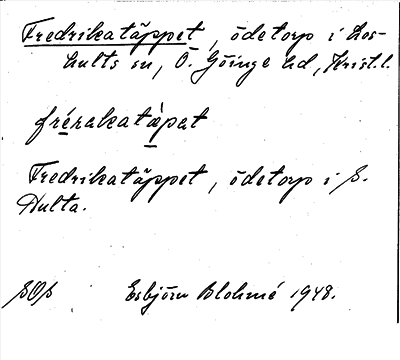 Fredrikatäppet, ödetorp i Los-
hults sn, Ö. Göinge hd, Krist. l.
frérakatàpat
Fredrikatäppet, ödetorp i S.
Hulta.
SOS Esbjörn Blohmé 1948.